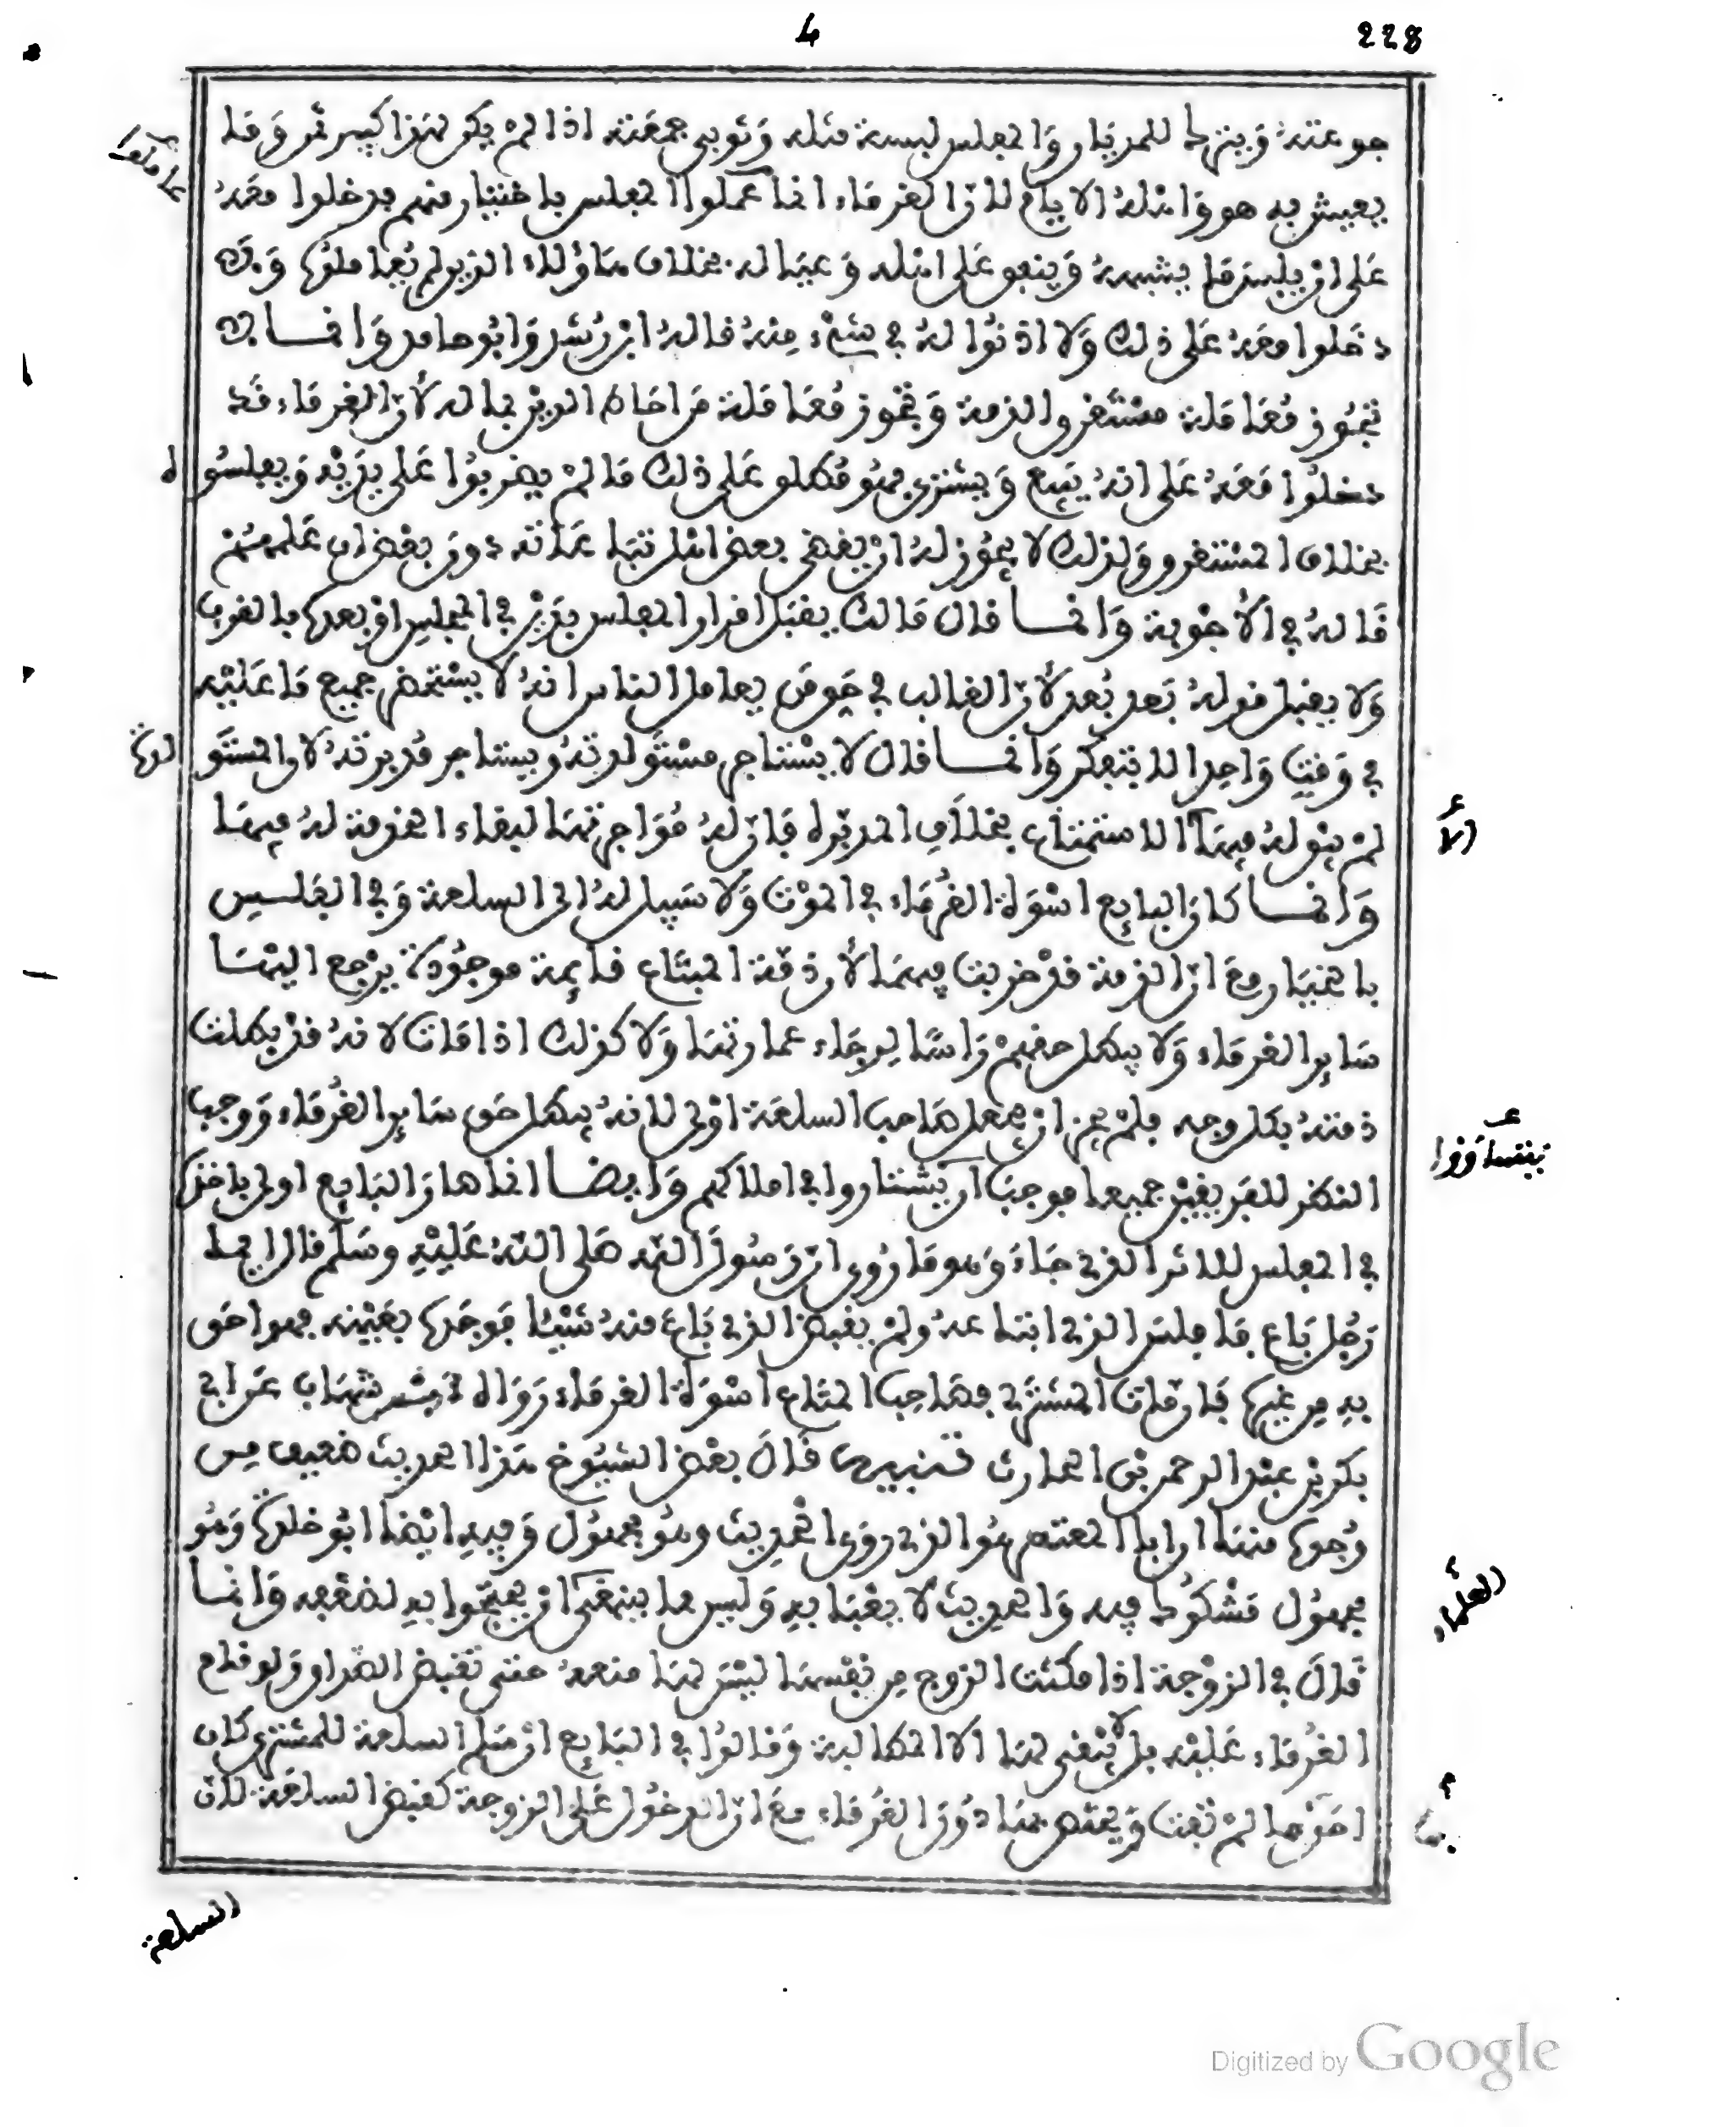 228
4
جوعته وينزع للمديان والمفلس لبسة مثله وثوبي جمعته اذا لم يكن لهذا كبير ثمن وما
يعيش به هو واهله الايام لان الغرماء انما عملوا المفلس باختيار منهم ودخلوا معه
على ان يلبس ما يشبهه وينفق على اهله وعياله بخلاف هاؤلاء الذين لم يعاملوه ولا
دخلوا معه على ذلك ولا اذنوا له في شيء منه قاله ابن رشد وابو حامد وانما لا
تجوز معاملة مستغرق الذمة وتجوز معاملة من احاط الدين بماله لان الغرماء قد
دخلوا معه على انه يبيع ويشتري فهو مطلق على ذلك ما لم يضربوا على يديه ويفلسوا
بخلاف المستغرق ولذلك لا يجوز له ان يقضي بعض اهل تباعاته دون بعض
قاله في الاجوبة وانما قال مالك يقبل اقرار المفلس بدين في المجلس او بعده بالقرب
ولا يقبل قوله بعد بعد لان الغالب في من يعامل الناس انه لا يستحضر جميع ما عليه
في وقت واحد الا بتفكر وانما قال لا يستاجر مستولدته ويستاجر مدبرته لان المستو لدة
لم يبق له فيها الا الاستمتاع بخلاف المدبرة فان له مؤاجرتها لبقاء الخدمة له فيها
وانما كان البايع اسوة الغرماء في الموت ولا سبيل له الى السلعة وفي الفلس
بالخيار مع ان الذمة قد خربت فيهما لان ذمة المبتاع قايمة موجودة يرجع اليها
ساير الغرماء ولا يبطل حقهم راسا لرجاء عمارتها ولا كذلك اذا مات لانه قد بطلت
ذمته بكل وجه فلم يجز ان يجعل صاحب السلعة اولى لانه يبطل حق ساير الغرماء ووجب
النظر للفريقين جميعا فوجب ان يتساووا في املاكهم وايضا انما صار البايع اولى باخذ
في المفلس للاثر الذي جاء وهو ما روي ان رسول الله صلى الله عليه وسلم قال ايما
رجل باع فافلس الذي ابتاعه ولم يقبض الذي باع منه شيئا فوجده بعينه فهو احق
به من غيره فان مات المشتري فصاحب المتاع اسوة الغرماء رواه ابن شهاب عن ابي
بكر بن عبد الرحمن بن الحارث تنبيه قال بعض الشيوخ هذا الحديث ضعيف من
وجوه منها ان ابا المعتمر هو الذي روى الحديث وهو مجهول وفيه ايضا ابو خلدة وهو
مجهول مشكوك فيه والحديث لا يعبا به وليس مما ينبغي ان يحتجوا به لضعفه وانما
قال في الزوجة اذا مكنت الزوج من نفسها ليس لها منعه حتى تقبض الصداق ولو قام
الغرماء عليه بل لا يبقى لها الا المطالبة وقالوا في البايع ان سلم السلعة للمشتري كان
احق بها لم تفت ويختص بها دون الغرماء مع ان الدخول على الزوجة كقبض السلعة لان
يتساووا
العلماء
السلعة
Digitized by Google